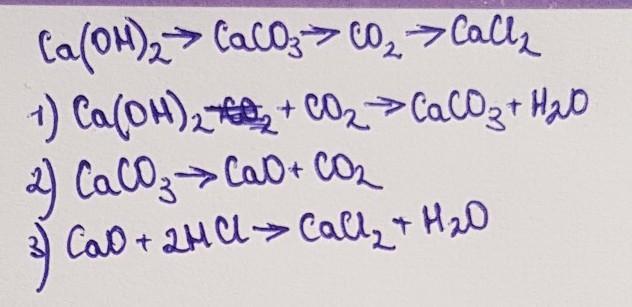 Ca(OH)₂→CaCO₃→CO₂→CaCl₂
1) Ca(OH)₂ + CO₂→CaCO₃+H₂O
2) CaCO₃→CaO+CO₂
3) CaO+2HCl→CaCl₂+H₂O